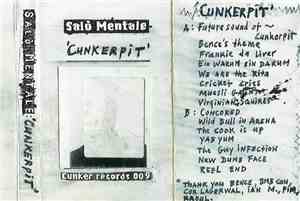 SALÒ MENTALE
'CUNKERPIT'
Salò Mentale
'CUNKERPIT'
Cunker records 009
'CUNKERPIT'
A: Future sound of
Cunkerpit
Bence's theme
Frankie da Liver
Ein WARUM ein DARUM
We are the Rita
Cricket Cries
Muesli
Virginian Squires
B: CONCORED
Wild Bull in ARENA
The Cook is up
YAB YUM
The Guy Infection
New Dumb Face
REEL END
* THANK YOU BENCE, DMB CON,
COR LAGERWAL, IAN M., PIM,
RAOUL.